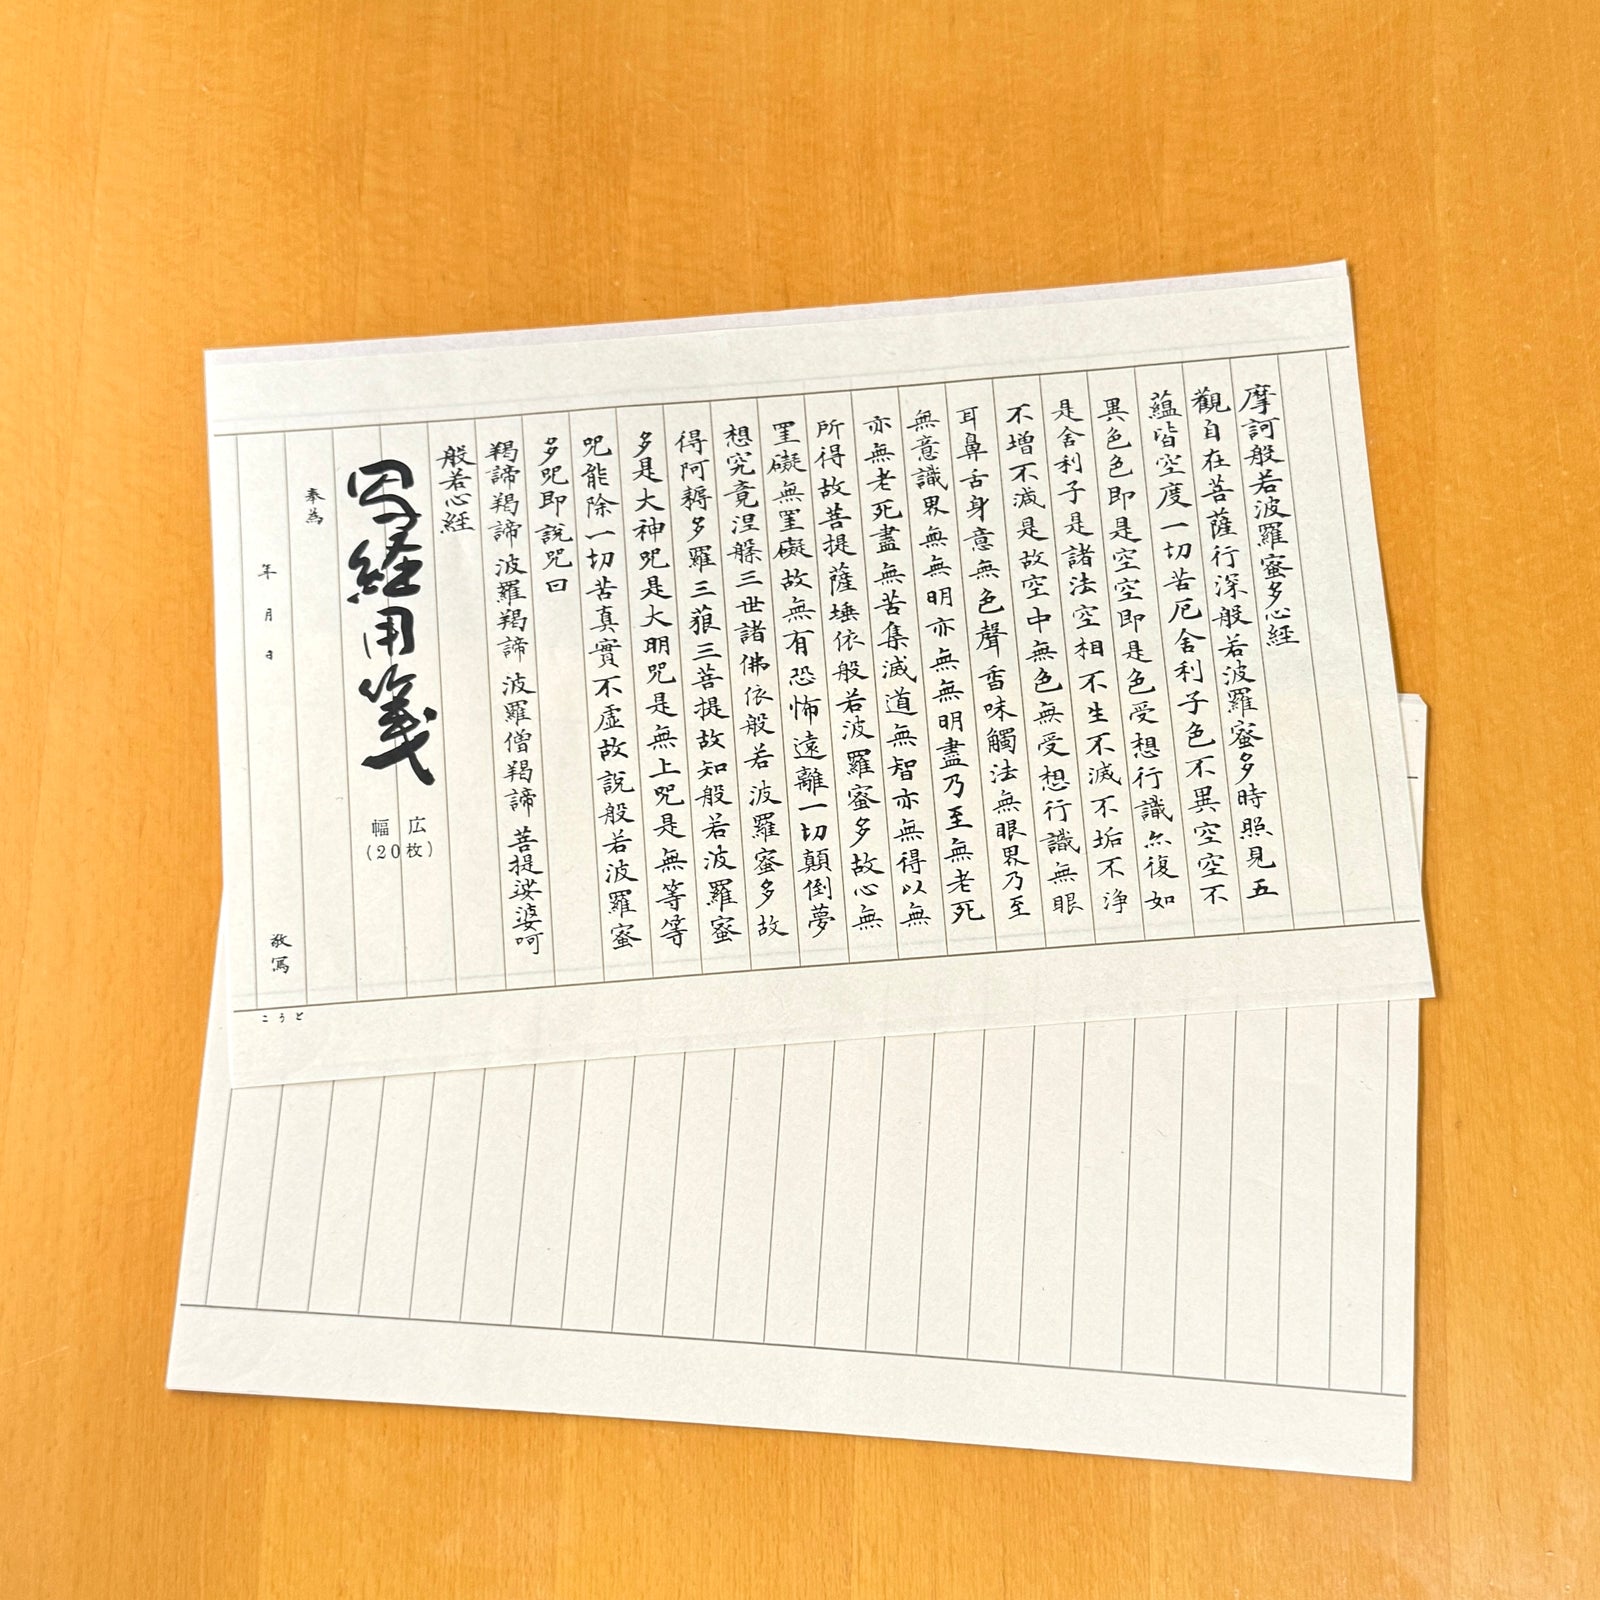 摩訶般若波羅蜜多心経
觀自在菩薩行深般若波羅蜜多時照見五
蘊皆空度一切苦厄舍利子色不異空空不
異色色即是空空即是色受想行識亦復如
是舍利子是諸法空相不生不滅不垢不浄
不增不減是故空中無色無受想行識無眼
耳鼻舌身意無色聲香味觸法無眼界乃至
無意識界無無明亦無無明盡乃至無老死
亦無老死盡無苦集滅道無智亦無得以無
所得故菩提薩埵依般若波羅蜜多故心無
罣礙無罣礙故無有恐怖遠離一切顛倒夢
想究竟涅槃三世諸佛依般若波羅蜜多故
得阿耨多羅三藐三菩提故知般若波羅蜜
多是大神咒是大明咒是無上咒是無等等
咒能除一切苦真實不虛故說般若波羅蜜
多咒即說咒曰
羯諦羯諦 波羅羯諦 波羅僧羯諦 菩提娑婆呵
般若心経
写経用箋
広幅
(20枚)
奉為
年 月 日 敬写
こうど